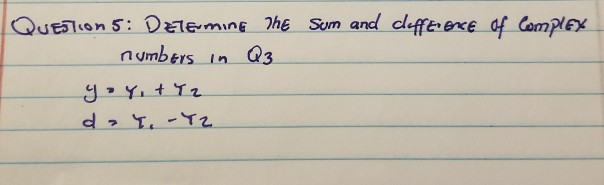 QUESTION 5: DETERMINE THE Sum and difference of Complex
numbers in Q3
y = Y₁ + Y₂
d = Y₁ - Y₂